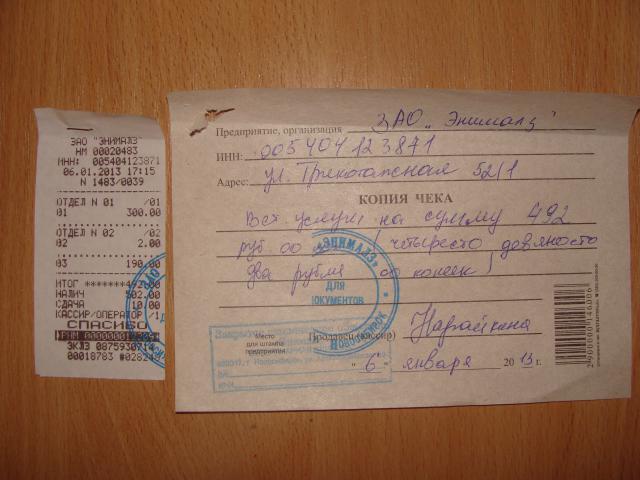 ЗАО "ЭНИМАЛЗ"
НМ 00020483
ИНН: 005404123871
06.01.2013 17:15
N 1483/0039
ОТДЕЛ N 01 /01
01 300.00
ОТДЕЛ N 02 /02
02 2.00
03 190.00
ИТОГ *******492.00
НАЛИЧ 502.00
СДАЧА 10.00
КАССИР/ОПЕРАТОР /1
СПАСИБО
ЭКЛЗ 0875930714
00018783 #028248
Предприятие, организация ЗАО "Энималз"
ИНН: 005404123871
Адрес: ул. Трикотажная 52/1
КОПИЯ ЧЕКА
Вет. услуги на сумму 492
руб 00 (четыресто девяносто
два рубля 00 копеек)
"ЭНИМАЛЗ"
ДЛЯ
ДОКУМЕНТОВ
Новосибирск
Место
для штампа
предприятия
Продавец (кассир) Нарайкина
"6" января 2013 г.
2900000146006